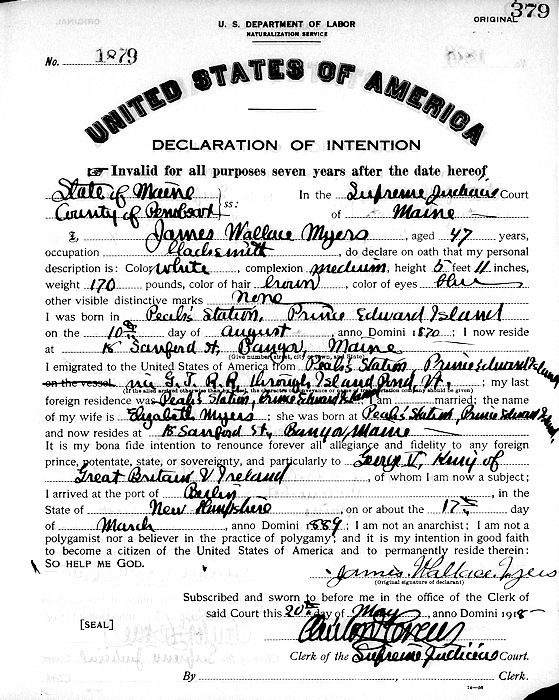 ORIGINAL 379
U. S. DEPARTMENT OF LABOR
NATURALIZATION SERVICE
No. 1879
UNITED STATES OF AMERICA
DECLARATION OF INTENTION
☞ Invalid for all purposes seven years after the date hereof
State of Maine
County of Penobscot ss:
In the Supreme Judicial Court
of Maine
I, James Wallace Myers, aged 47 years,
occupation Blacksmith, do declare on oath that my personal
description is: Color white, complexion medium, height 5 feet 11 inches,
weight 170 pounds, color of hair brown, color of eyes blue
other visible distinctive marks None
I was born in Peake's Station, Prince Edward Island
on the 10th day of August, anno Domini 1870; I now reside
at 15 Sanford St, Bangor, Maine
(Give number, street, city or town, and State)
I emigrated to the United States of America from Peake's Station Prince Edward Island
on the vessel via G. T. R. R. through Island Pond, Vt.; my last
foreign residence was Peake's Station, Prince Edward Island
I am married; the name
of my wife is Elizabeth Myers; she was born at Peake's Station, Prince Edward Island,
and now resides at 15 Sanford St, Bangor Maine
It is my bona fide intention to renounce forever all allegiance and fidelity to any foreign
prince, potentate, state, or sovereignty, and particularly to George V, King of
Great Britain & Ireland, of whom I am now a subject;
I arrived at the port of Berlin, in the
State of New Hampshire, on or about the 17th day
of March, anno Domini 1889; I am not an anarchist; I am not a
polygamist nor a believer in the practice of polygamy; and it is my intention in good faith
to become a citizen of the United States of America and to permanently reside therein:
SO HELP ME GOD.
James Wallace Myers
(Original signature of declarant)
Subscribed and sworn to before me in the office of the Clerk of
said Court this 20th day of May, anno Domini 1918
[SEAL]
Clerk of the Supreme Judicial Court.
By , Clerk.